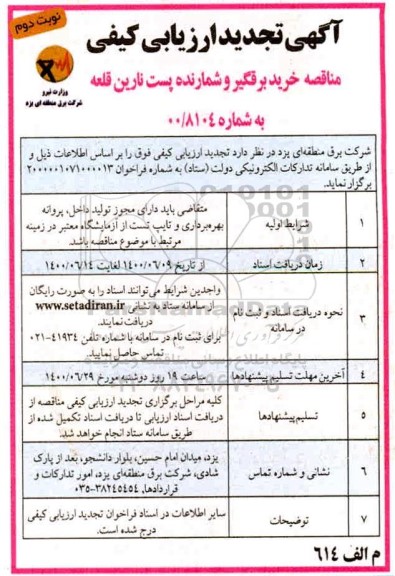 نوبت دوم
آگهی تجدید ارزیابی کیفی
مناقصه خرید برقگیر و شمارنده پست نارین قلعه
به شماره ۰۰/۸۱۰۴
وزارت نیرو
شرکت برق منطقه ای یزد
شرکت برق منطقه‌ای یزد در نظر دارد تجدید ارزیابی کیفی فوق را بر اساس اطلاعات ذیل و
از طریق سامانه تدارکات الکترونیکی دولت (ستاد) به شماره فراخوان ۲۰۰۰۰۰۱۰۷۱۰۰۰۰۱۳
برگزار نماید.
۱ شرایط اولیه
متقاضی باید دارای مجوز تولید داخل، پروانه
بهره‌برداری و تایپ تست از آزمایشگاه معتبر در زمینه
مرتبط با موضوع مناقصه باشد
۲ زمان دریافت اسناد از تاریخ ۱۴۰۰/۰۶/۰۹ لغایت ۱۴۰۰/۰۶/۱۴
۳ نحوه دریافت اسناد و ثبت نام
در سامانه
واجدین شرایط می‌توانند اسناد را به صورت رایگان
از سامانه ستاد به نشانی www.setadiran.ir
دریافت نمایند.
برای ثبت نام در سامانه با شماره تلفن ۴۱۹۳۴-۰۲۱
تماس حاصل نمایید
۴ آخرین مهلت تسلیم پیشنهادها ساعت ۱۹ روز دوشنبه مورخ ۱۴۰۰/۰۶/۲۹
۵ تسلیم پیشنهادها
کلیه مراحل برگزاری تجدید ارزیابی کیفی مناقصه از
دریافت اسناد ارزیابی تا دریافت اسناد تکمیل شده از
طریق سامانه ستاد انجام خواهد شد.
۶ نشانی و شماره تماس
یزد، میدان امام حسین، بلوار دانشجو، بعد از پارک
شادی، شرکت برق منطقه‌ای یزد، امور تدارکات و
قراردادها، ۳۸۲۴۵۴۵۴-۰۳۵
۷ توضیحات
سایر اطلاعات در اسناد فراخوان تجدید ارزیابی کیفی
درج شده است.
م الف ۶۱۴